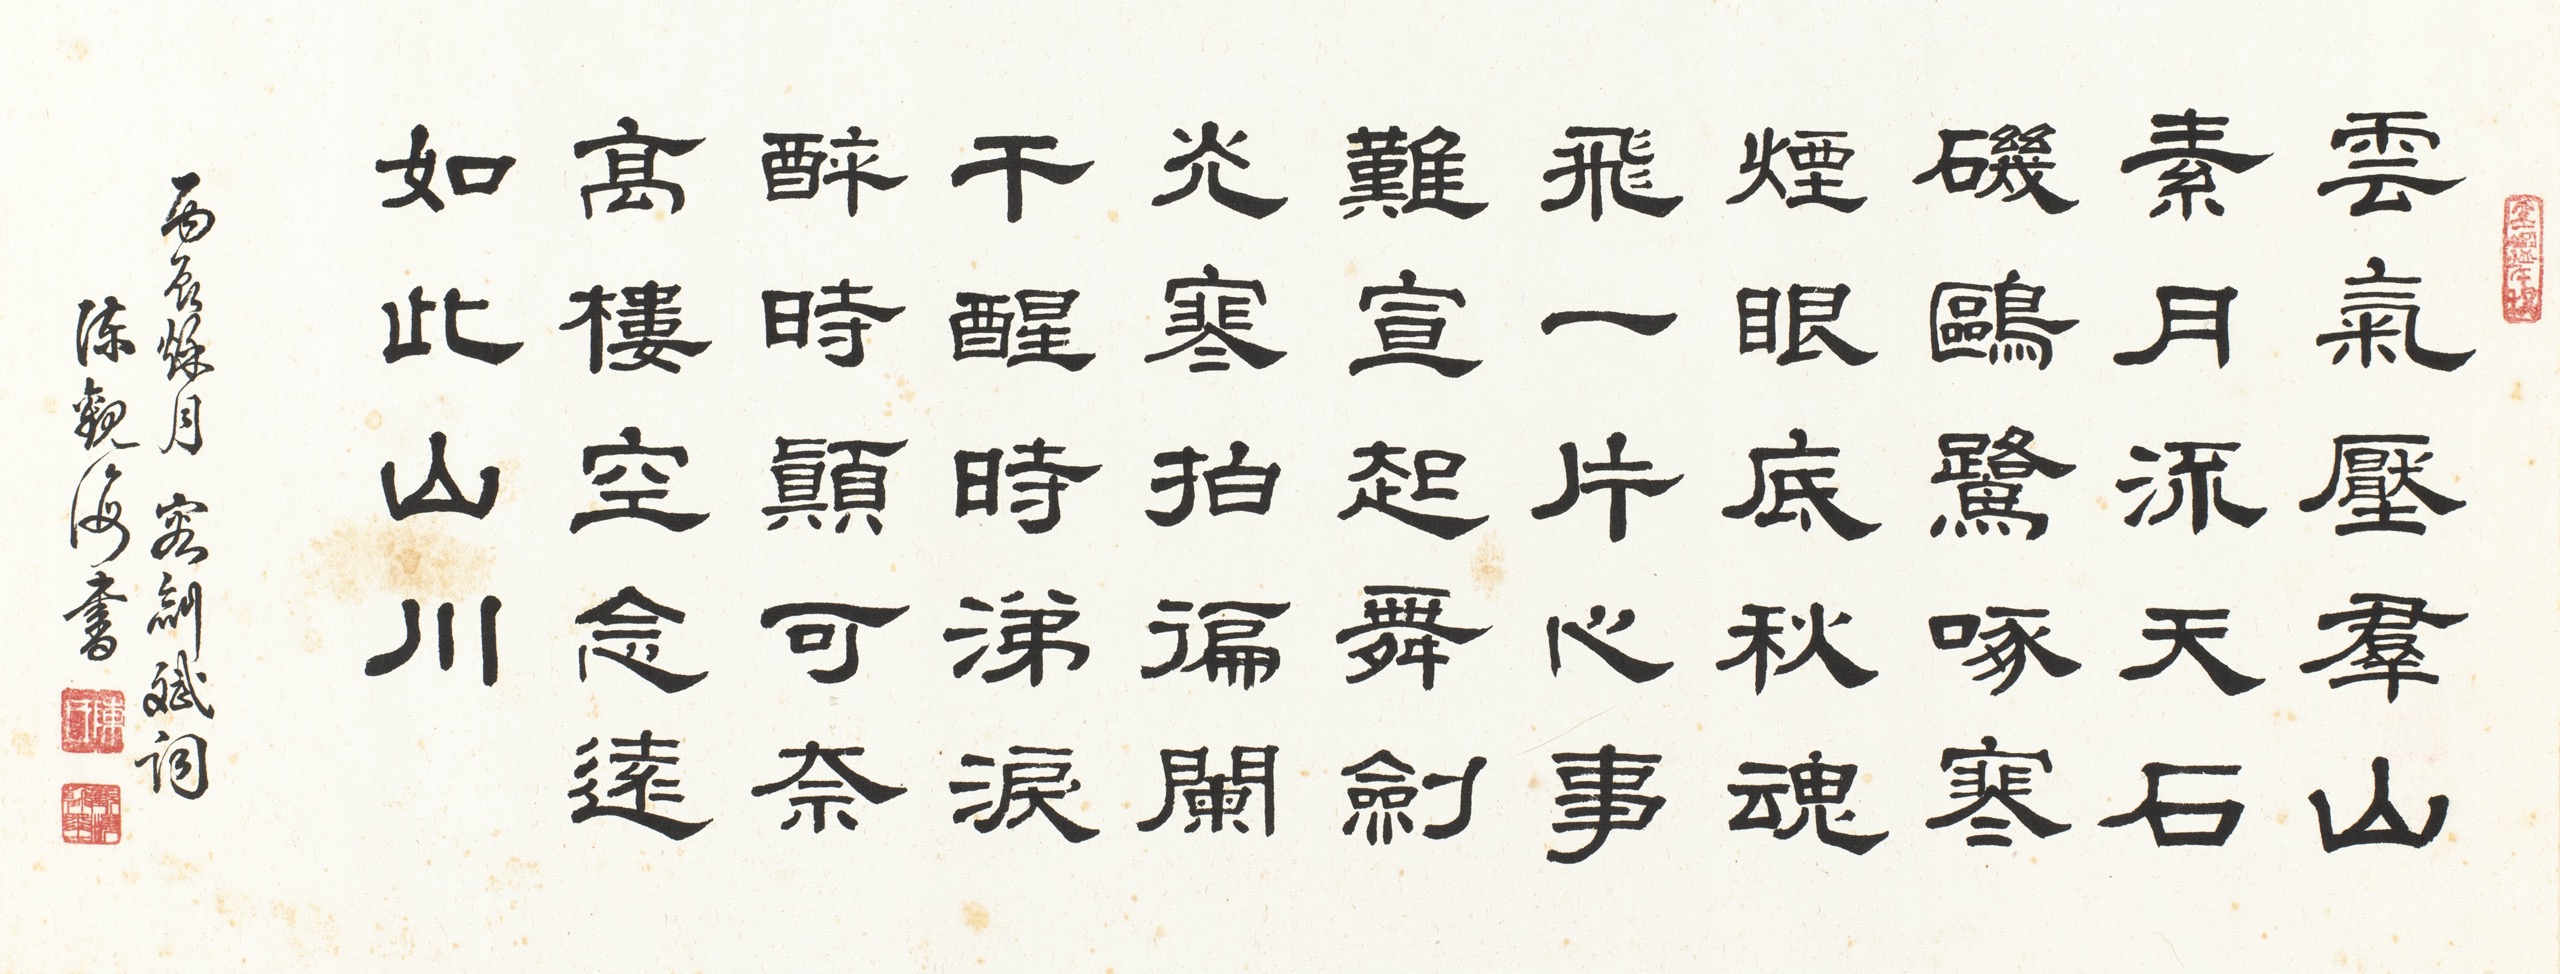 雲氣壓羣山
素月流天石
磯鷗鷺啄寒
煙眼底秋魂
飛一片心事
難宣起舞劍
光寒拍徧闌
干醒時涕淚
醉時顛可奈
高樓空念遠
如此山川
丙辰餘月 寄劍斌詞
陳觀海書